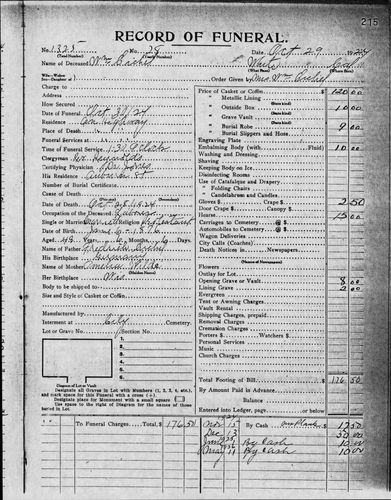 215
RECORD OF FUNERAL.
No. 1323 No. 28 Date, Oct 29 1924
(Total Number) (Yearly Number)
Name of Deceased Wm White Cal
(What Race) (Where Born)
Order Given by Mrs. Wm
Charge to
Address
How Secured
Date of Funeral Oct 31/24
Residence
Place of Death
Funeral Services at
Time of Funeral Service 1:30 O'Clock
Clergyman Reynolds
Certifying Physician Dr Jones
His Residence Auburn St
Number of Burial Certificate
Cause of Death
Date of Death Oct 29 1924
Occupation of the Deceased Laborer
Single or Married Married Religion Protestant
Date of Birth June 6 1876
Aged 48 Years Months Days
Name of Father Frederick
His Birthplace Germany
Name of Mother Amelia Wilde
(Maiden Name)
Her Birthplace
Body to be shipped to
Size and Style of Casket or Coffin
Manufactured by
Interment at City Cemetery.
Lot or Grave No. Section No.
1
2
3
4
5
6
Diagram of Lot or Vault
Designate all Graves in Lot with Numbers (1, 2, 3, 4, etc.) and mark space for this Funeral with a cross (+)
Designate place for Monument with a small square
Use space to the right of Diagram for the names of those buried in Lot.
Price of Casket or Coffin $ 120 00
Metallic Lining
(State kind)
Outside Box 10 00
(State kind)
Grave Vault
(State kind)
Burial Robe 9 00
(State kind)
Burial Slippers and Hose
Engraving Plate
Embalming Body (with Fluid) 10 00
Washing and Dressing
Shaving
Keeping Body on Ice
Disinfecting Rooms
Use of Catafalque and Drapery
" Folding Chairs
" Candelabrum and Candles
Gloves $ Crape $ 2 50
Door Crape $ Canopy $
Hearse 15 00
Carriages to Cemetery @$
Automobiles to Cemetery @$
Wagon Deliveries
City Calls (Coaches)
Death Notices in Newspapers
(Names of Newspapers)
Flowers
Outlay for Lot
Opening Grave or Vault 8 00
Lining Grave 2 00
Evergreen
Tent or Awning Charges
Vault Rental
Shipping Charges, prepaid
Removal Charges
Cremation Charges
Porters $ Watchers $
Personal Services
Music
Church Charges
Total Footing of Bill $ 176 50
By Amount Paid in Advance
Balance
Entered into Ledger, page or below.
To Funeral Charges, Total $ 176 50
1924
Nov 15 By Cash
Dec 13 50 00
By Cash 10 00
May 11 By Cash 10 00